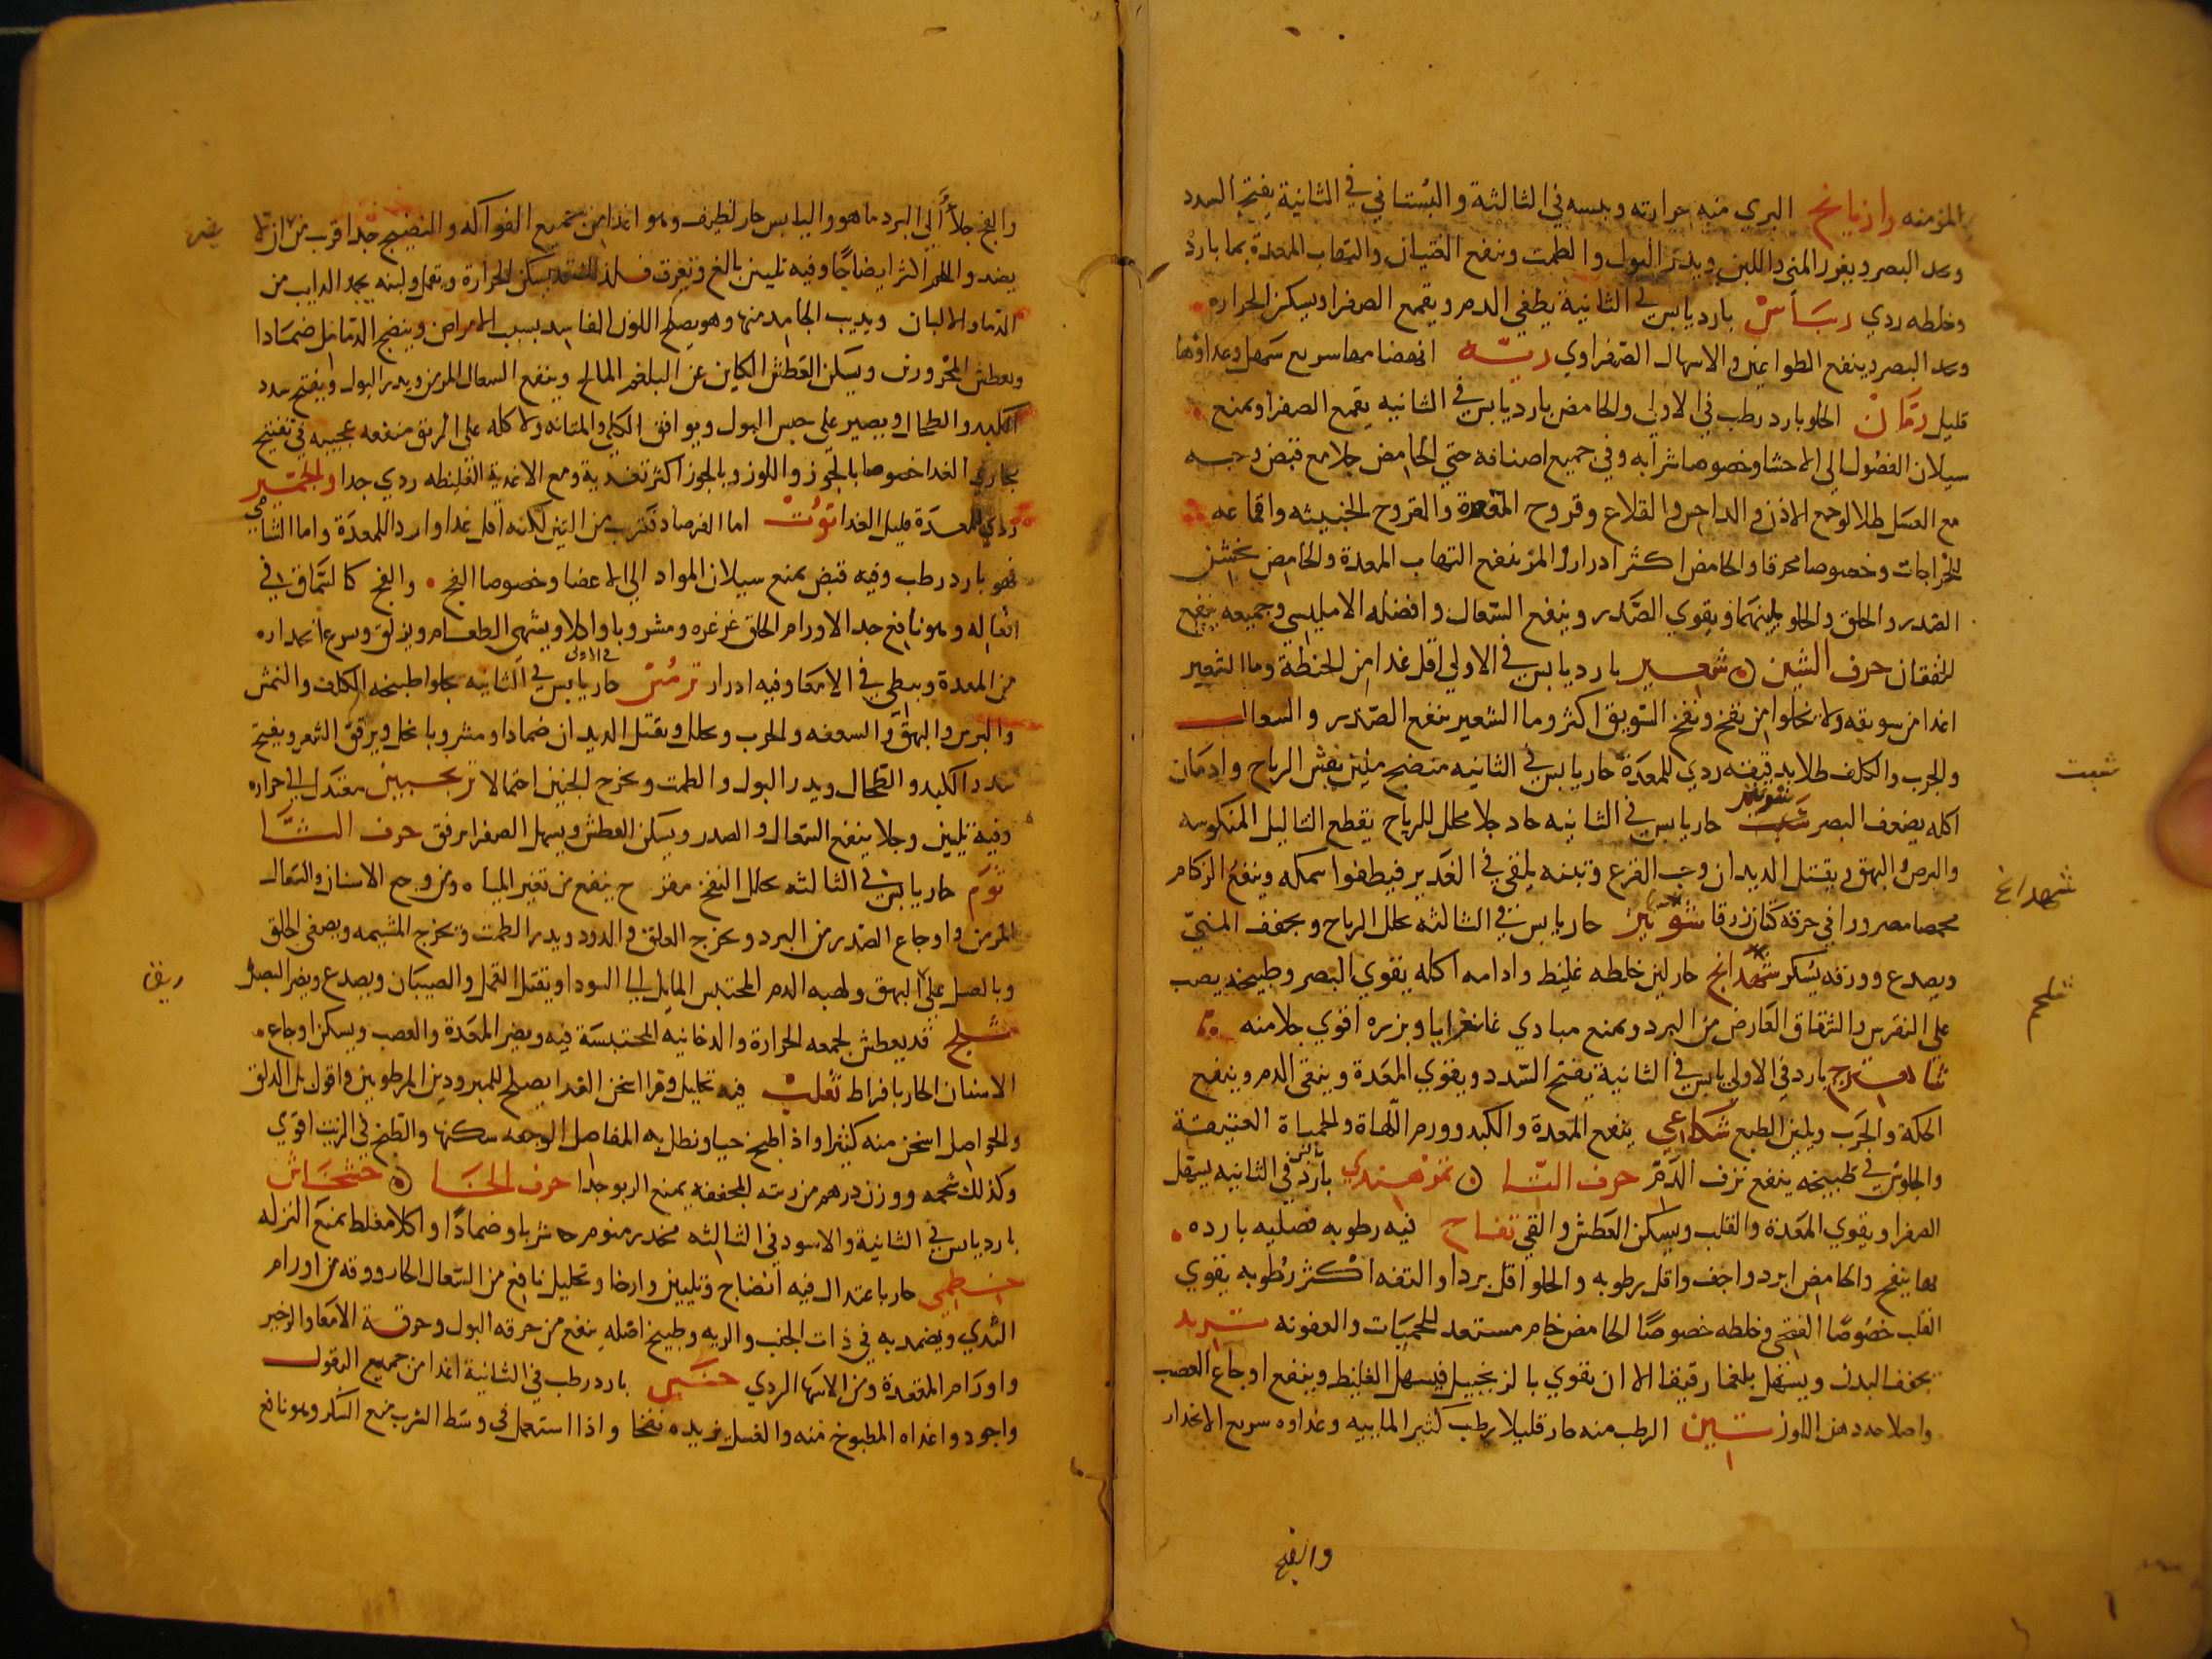 المزمنه رازيانج البري منه حرارته ويبسه في الثالثة والبستاني في الثانية يفتح السدد
ويحد البصر ويغزر المني واللبن ويدر البول والطمث وينفع الغثيان والتهاب المعدة بماء بارد
وخلطه ردي ريباس بارد يابس في الثانية يطفي الدم ويقمع الصفرا ويسكن الحراره
ويحد البصر وينفع الطواعين والاسهال الصفراوي ريه انهضامها سريع سهل وغداوها
قليل رمان الحلو بارد رطب في الاولي والحامض بارد يابس في الثانيه يقمع الصفرا ويمنع
سيلان الفضول الي الاحشا وخصوصا شرابه وفي جميع اصنافه حتي الحامض جلا مع قبض وحبه
مع العسل طلا لوجع الاذن والداحس والقلاع وقروح المعدة والقروح الخبيثه واقماعه
للجراحات وخصوصا محرقا والحامض اكثر ادرارا والمز ينفع التهاب المعدة والحامض يخشن
الصدر والحلق والحلو يلينهما ويقوي الصدر وينفع السعال وافضله الامليسي وجميعه ينفع
الخفقان حرف الشين شعير بارد يابس في الاولي اقل غدا من الحنطة وما الشعير
اغدا من سويقه ولا يخلوا من نفخ ونفخ السويق اكثر وما الشعير ينفع الصدر والسعال
والجرب والكلف طلا بدقيقه ردي للمعدة حار يابس في الثانيه منضج ملين يفش الرياح وادمان
شبت
اكله يضعف البصر شونيز حار يابس في الثانيه حاد جلا محلل للرياح يقطع الثاليل المنكوسه
والبرص والبهق ويقتل الديدان وحب القرع وتبنه يلقي في الغدير فيطفوا سمكه وينفع الزكام
شهدانج
محمصا مصرورا في خرقة كتان زرقا شونيز حار يابس في الثالثه يحلل الرياح ويجفف المني
ويصدع وورقه يسكر شهدانج حار لين خلطه غليظ وادامه اكله يقوي البصر وطبيخه يصب
شلجم
علي النقرس والشقاق العارض من البرد ويمنع مبادي غانغرايا وبزره اقوي جلا منه
شاهترج بارد في الاولي يابس في الثانية يفتح السدد ويقوي المعدة وينقي الدم وينفع
الحكة والجرب ويلين الطبع شكاعي ينفع المعدة والكبد وورم اللهاة والحمياة العتيقة
والجلوس في طبيخه ينفع نزف الدم حرف التا تمر هندي بارد يابس في الثانيه يسهل
الصفرا ويقوي المعدة والقلب ويسكن العطش والقي تفاح فيه رطوبه فضليه بارده
بها ينفخ والحامض ابرد واجف واقل رطوبه والحلو اقل بردا والتفه اكثر رطوبه يقوي
القلب خصوصا الفتحي وخلطه خصوصا الحامض خام مستعد للحميات والعفونه تربد
يجفف البدن ويسهل بلغما رقيقا الا ان يقوي بالزنجبيل فيسهل الغليظ وينفع اوجاع العصب
واصلاحه دهن اللوز تين الرطب منه حار قليلا رطب كثير المائيه وغداوه سريع الانحدار
والفج
والفج جلا الي البرد ما هو واليابس حار لطيف وهو اغدا من جميع الفواكه والنضيج جدا قرب من ان لا
يضر
يضر واللحم اكثر ايضاجا وفيه تليين بالغ وتعرق فلذلك قد يسكن الحرارة ويقمل ولبنه يجمد الدايب من
الدما والالبان ويديب الجامد منها وهو يصلح اللون الفاسد بسبب الامراض وينضج الدماميل ضمادا
ويعطش المحرورين ويسكن العطش الكاين عن البلغم المالح وينفع السعال المزمن ويدر البول ويفتح سدد
الكبد والطحال ويصير علي حبس البول ويوافق الكلي والمثانه ولاكله علي الريق منفعه عجيبه في تفتيح
مجاري الغدا خصوصا بالجوز واللوز وبالجوز اكثر تغذية ومع الاغدية الغليظه ردي جدا والجميز
ردي للمعدة قليل الغدا توت اما الفرصاد فقريب من التين لكنه اقل غدا واردا للمعدة واما الشامي
فهو بارد رطب وفيه قبض يمنع سيلان المواد الي الاعضا وخصوصا الفج والفج كالسماق في
افعاله وهو نافع جدا لاورام الحلق غرغره ومشروبا واكلا ويشهي الطعام ويزلق وسرع انحداره
من المعدة ويبطي في الامعا وفيه ادرار ترمس حار يابس في الثانيه يجلوا طبيخه الكلف والنمش
في الاولي
والبرص والبهق والسعفه والجرب ويحلل ويقتل الديدان ضمادا ومشروبا بخل ويرقق الشعر ويفتح
سدد الكبد والطحال ويدر البول والطمث ويخرج الجنين احتمالا ترنجبين معتدل الي حراره
وفيه تليين وجلا ينفع السعال والصدر ويسكن العطش ويسهل الصفرا برفق حرف الثا
ثوم حار يابس في الثالثه يحلل النفخ مقرح ينفع من تغير المياه ومن وجع الاسنان والسعال
المزمن واوجاع الصدر من البرد ويخرج العلق والدود ويدر الطمث ويخرج المشيمه ويصفي الحلق
وبالعسل علي البهق ولهبه الدم المحتبس المايل الي السودا ويقتل القمل والصيبان ويصدع ويضر البصر
ثلج قد يعطش لجمعه الحرارة والدخانيه المحتبسة فيه ويضر المعدة والعصب ويسكن اوجاع
الاسنان الحار بافراط ثعلب فيه تحليل وفرا اسخن الفدا يصلح للمبرودين المرطوبين واقول بل الدلق
والحواصل اسخن منه كثيرا واذا طبخ حيا ونطل به المفاصل الوجعه سكنها والطبخ في الزيت اقوي
وكذلك شحمه ووزن درهم من ريته المجففه يمنع الربو جدا حرف الخا خشخاش
بارد يابس في الثانية والاسود في الثالثه مخدر منوم شربا وضمادا واكلا مغلظ يمنع النزله
خطمي حار باعتدال فيه انضاج وتليين وارخا وتحليل نافع من السعال الحار وورقه من اورام
الثدي ويضمد به في ذات الجنب والريه وطبيخ اصله ينفع من حرقه البول وحرقة الامعا والزحير
واورام المقعدة ومن الاسهال الردي خس بارد رطب في الثانية اغدا من جميع البقول
واجود واغداه المطبوخ منه والغسل يزيده نفخا واذا استعمل في وسط الشرب منع السكر وهو نافع